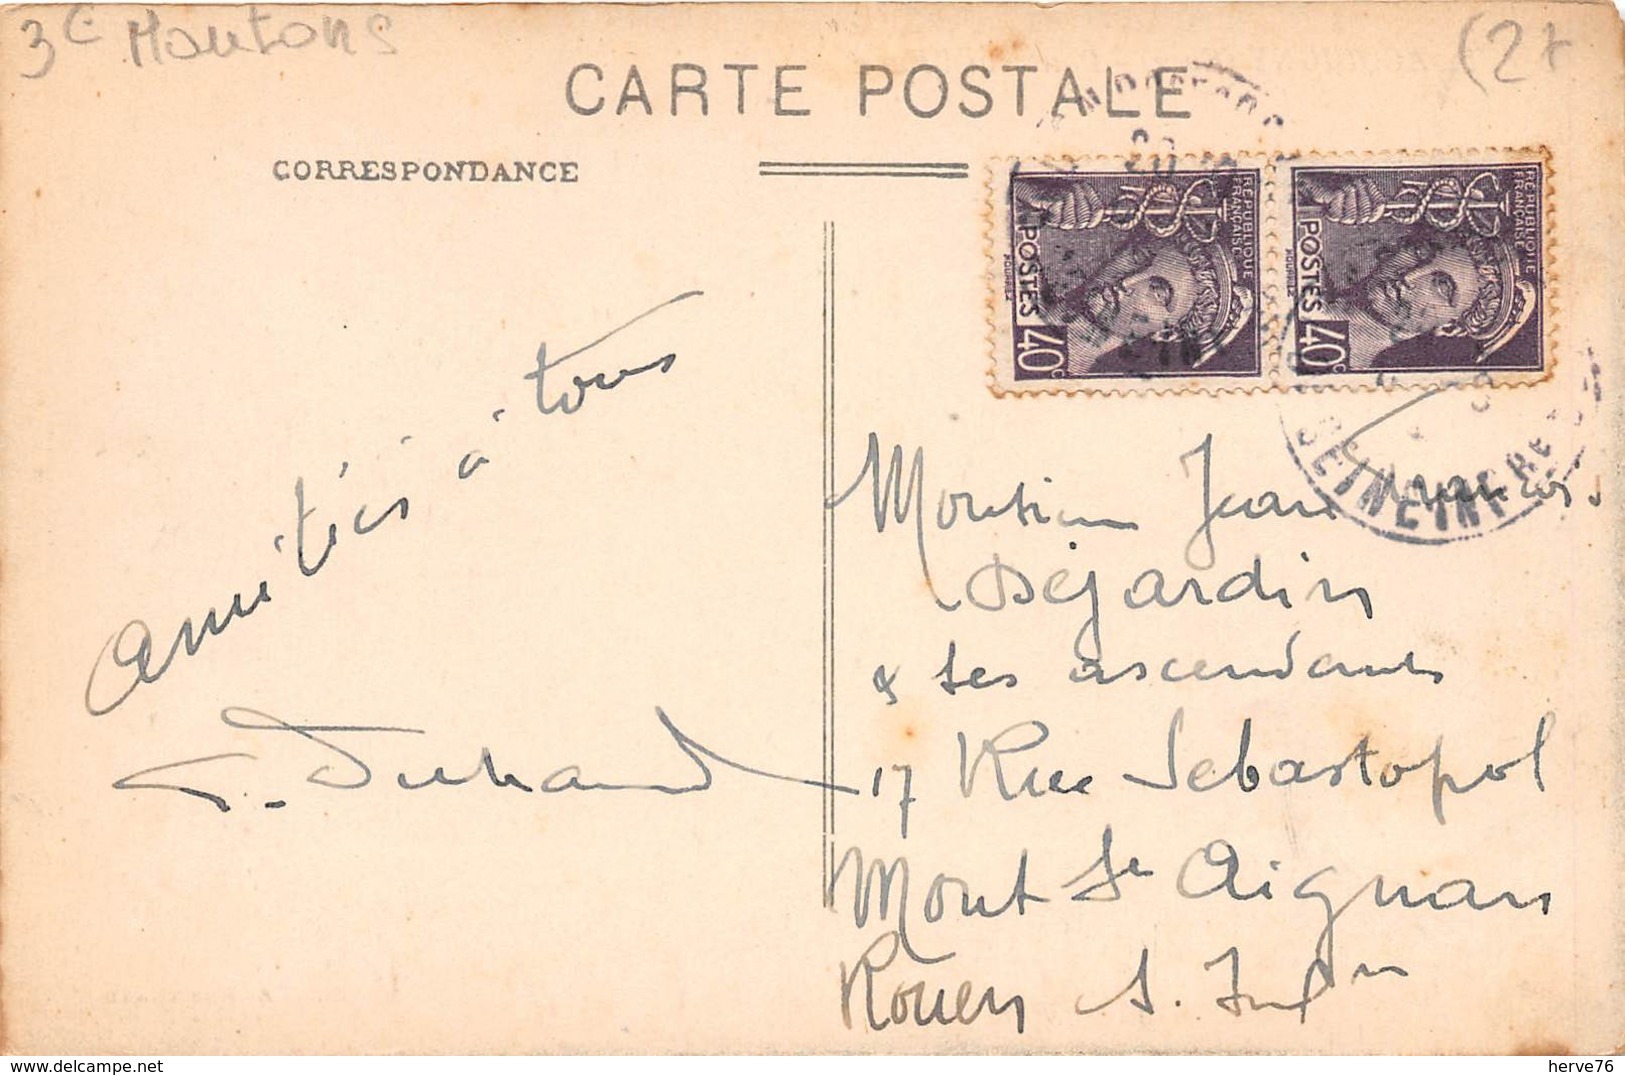 3e Moutons
(27
CARTE POSTALE
CORRESPONDANCE
REPUBLIQUE
FRANCAISE
POSTES
40c
REPUBLIQUE
FRANCAISE
POSTES
40c
SEINE INFRE
amitiés à tous
Monsieur Jean François
Déjardin
& ses ascendants
17 Rue Sebastopol
Mont St Aignan
Rouen S. Infre
herve76